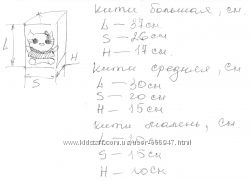 кити большая, см
L — 37см
S — 26см
H — 17см.
кити средняя, см
L — 30см
S — 20см
H — 15см
кити мален<ь>, см
S — 15см
H — 10см
L
H
S